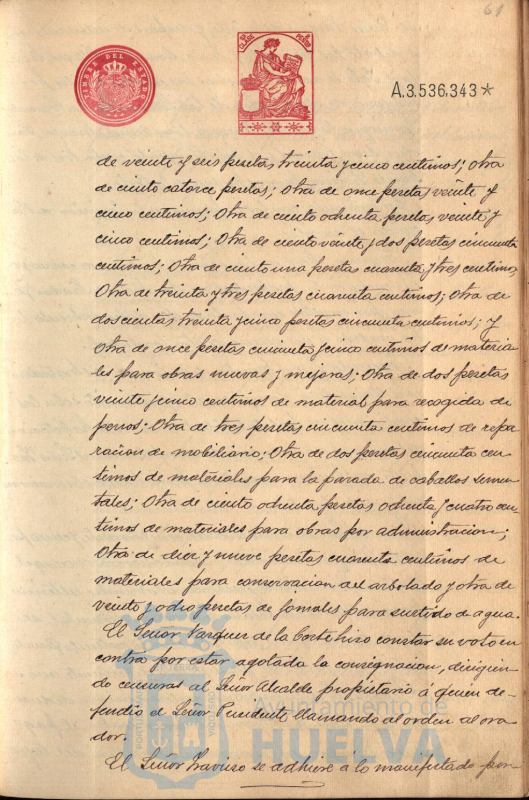 61
TIMBRE DEL ESTADO
CLASE
A.3.536.343*
de veinte y seis pesetas treinta y cinco centimos; Otra
de ciento catorce pesetas; Otra de once pesetas veinte y
cinco centimos; Otra de ciento ochenta pesetas, veinte y
cinco centimos; Otra de ciento veinte y dos pesetas cincuenta
centimos; Otra de ciento una pesetas cuarenta y tres centimos,
Otra de treinta y tres pesetas cincuenta centimos; Otra de
doscientas treinta y cinco pesetas cincuenta centimos; y
Otra de once pesetas cincuenta y cinco centimos de materia-
les para obras nuevas y mejoras; Otra de dos pesetas
veinte y cinco centimos de material para recogida de
perros; Otra de tres pesetas cincuenta centimos de repa-
racion de mobiliario; Otra de dos pesetas cincuenta cen-
timos de materiales para la parada de caballos semen-
tales; Otra de ciento ochenta pesetas ochenta y cuatro cen-
timos de materiales para obras por administracion;
Otra de diez y nueve pesetas cuarenta centimos de
materiales para conservacion del arbolado y otra de
veinte y ocho pesetas de jornales para surtido de agua.
El Señor Vazquez de la Corte hizo constar su voto en
contra por estar agotada la consignacion, dirigien-
do censuras al Señor Alcalde propietario á quien de-
fendio el Señor Presidente llamando al orden al ora-
dor.
El Señor Traviso se adhiere á lo manifestado por
Ayuntamiento de
HUELVA